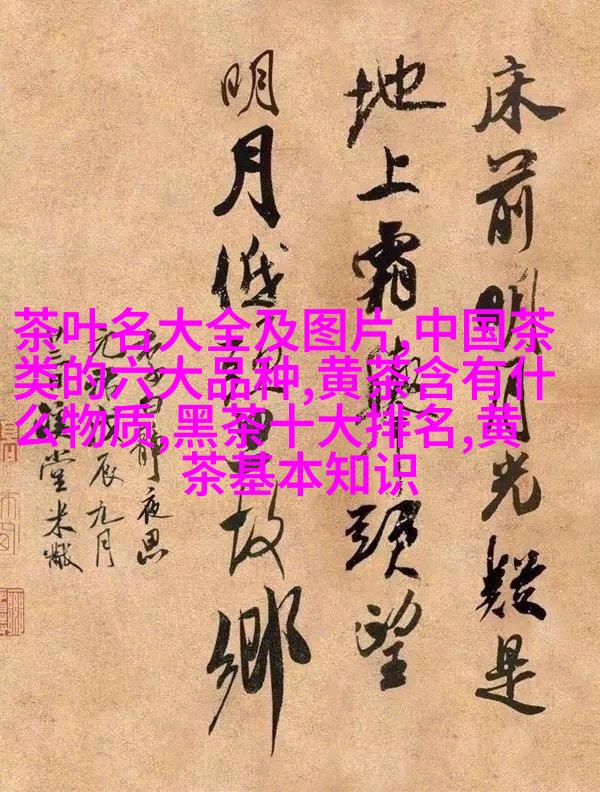 茶叶名大全及图片,中国茶
类的六大品种,黄茶含有什
么物质,黑茶十大排名,黄
茶基本知识
床前明月光疑是
地上霜頭望
明月低故鄉
夜思
辰九月
堂米黻